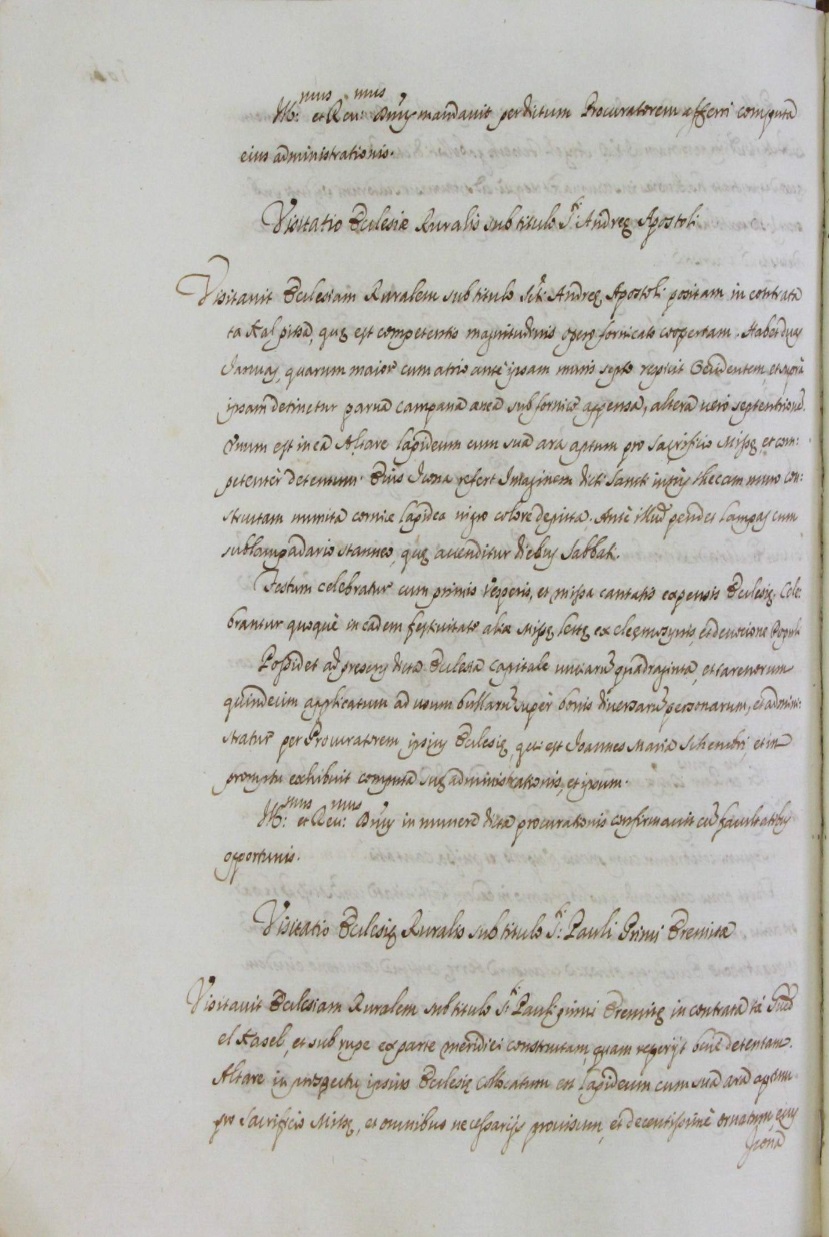 Ill:mus et Reu:mus Dnus mandauit per dictum Procuratorem afferri computa
eius administrationis.
Visitatio Ecclesiæ Ruralis sub titulo S:ti Andreę Apostoli
Visitauit Ecclesiam Ruralem sub titulo S:ti Andreę Apostoli positam in contrata
ta Kal pissa, quę est competentis magnitudinis opere fornicato coopertam. Habet duas
Januas, quarum maior cum atrio ante ipsam muris septo respicit Occidentem, et supra
ipsam detinetur parua campana ænea sub fornice appensa, altera uero septentrionem.
Vnum est in ea Altare lapideum cum sua ara aptum pro Sacrificio Missę, et com:
petenter detentum. Eius Icona refert Imaginem dicti Sancti intus thecam muro con:
structam munita cornice lapidea nigro colore depicta. Ante illud pendet lampas cum
sublampadario stanneo, quę accenditur diebus Sabbati.
Festum celebratur cum primis Vesperis, et missa cantatis expensis Ecclesię. Cele
brantur quoque in eadem festiuitate aliæ Missę lectę ex elegmosynis, et deuotione Populi
Possidet ad presens dicta Ecclesia capitale unciarum quadraginta, et tarenorum
quindecim applicatum ad usum bullarum super bonis diuersarum personarum, et admini:
stratur per Procuratorem ipsius Ecclesię, qui est Joannes Maria Schembri, et in
promptu exhibuit computa suę administrationis, et ipsum.
Ill:mus et Reu:mus Dnus in munere dictæ procurationis confirmauit cum facultatibus
opportunis.
Visitatio Ecclesię Ruralis sub titulo S:ti Pauli Primi Eremitæ
Visitauit Ecclesiam Ruralem sub titulo S:ti Pauli primi Eremitę in contrata ta Wied
el Kasel, et sub rupe ex parte meridiei constructam, quam reperijt bene detentam.
Altare in prospectu ipsius Ecclesię collocatum est lapideum cum sua ara aptum
pro Sacrificio Missę, et omnibus necessarijs prouisum, et decentissime ornatum, eius
Icona